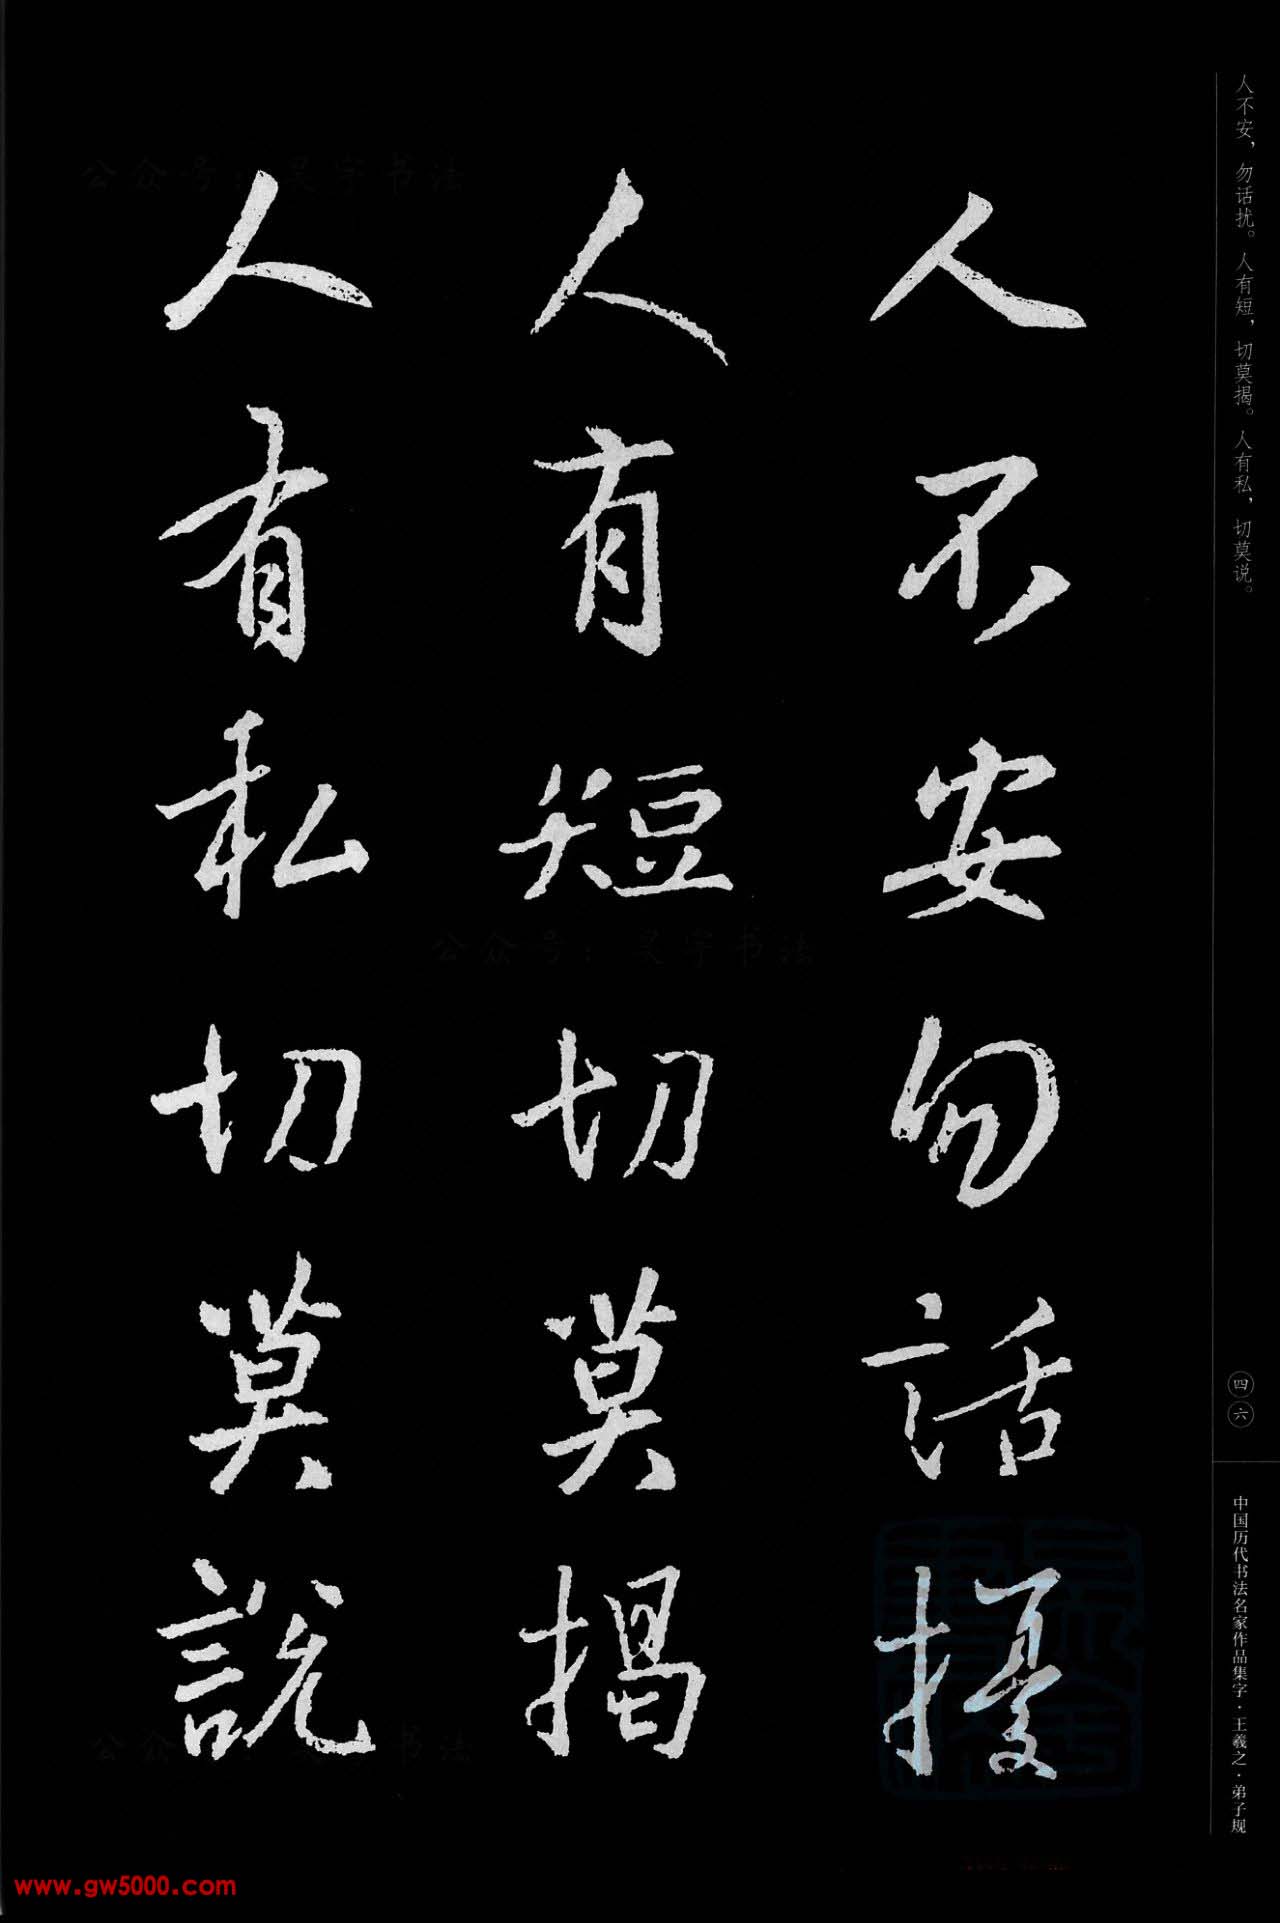 人不安，勿话扰。人有短，切莫揭。人有私，切莫说。
四六
中国历代书法名家作品集字·王羲之·弟子规
人不安勿話擾
人有短切莫揭
人有私切莫説
公众号：吴宇书法
公众号：吴宇书法
公众号：吴宇书法
www.gw5000.com